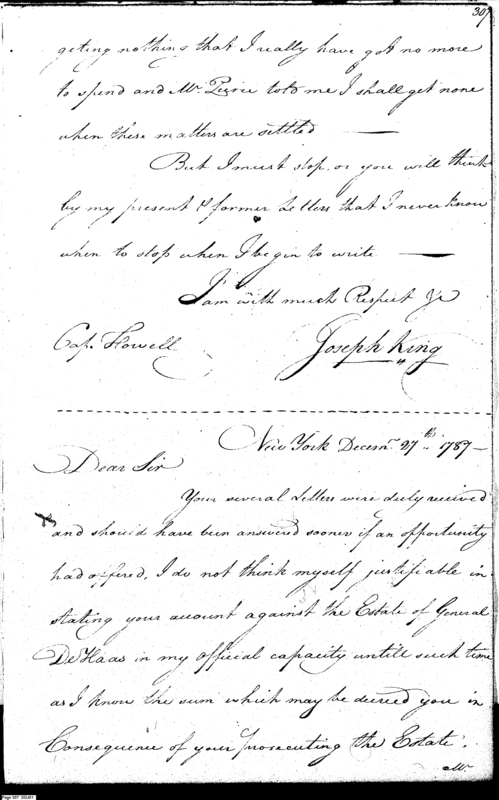 307
geting nothing that I really have got no more
to spend and Mr. Peirce told me I shall get none
when these matters are settled —
But I must stop or you will think
by my present & former Letters that I never know
when to stop when I begin to write —
I am with much Respect &c
Cap. Howell Joseph King
New York Decemr. 27th. 1787—
Dear Sir
Your several Letters were duly received
and should have been answered sooner if an opportunity
had offered. I do not think myself justifiable in
stating your account against the Estate of General
De Haas in my official capacity untill such time
as I know the sum which may be decreed you in
Consequence of your prosecuting the Estate.
Page 307 DDJ01